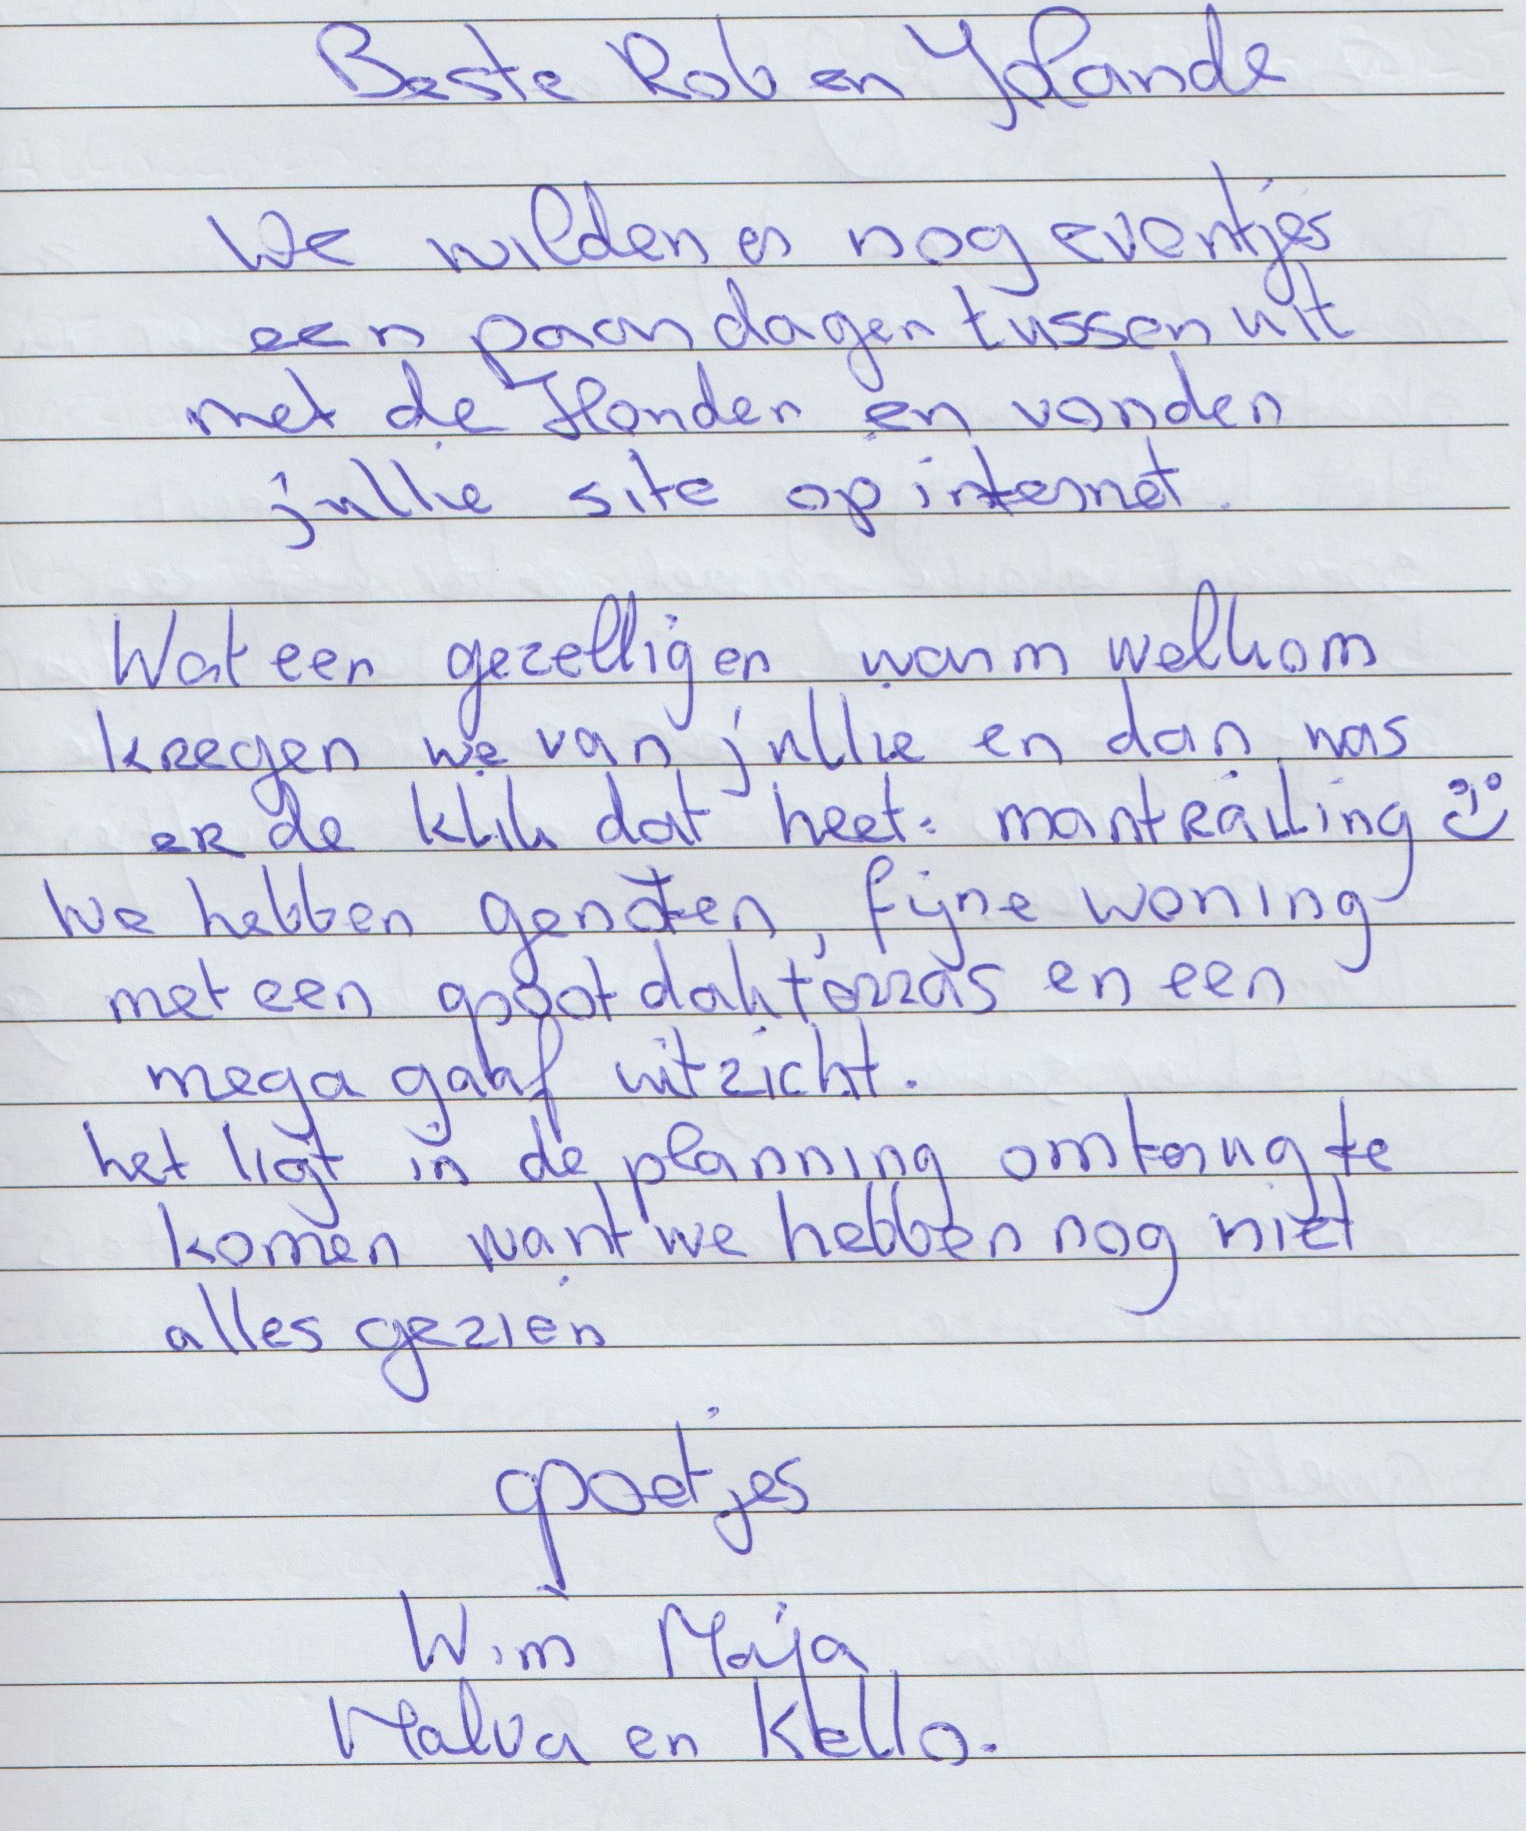 Beste Rob en Yolande
We wilden er nog eventjes
een paar dagen tussen uit
met de Honden en vonden
jullie site op internet.
Wat een gezellig en warm welkom
kregen we van jullie en dan was
er de klik dat heet: mantrailing
We hebben genoten, fijne woning
met een groot dakterras en een
mega gaaf uitzicht.
het ligt in de planning om terug te
komen want we hebben nog niet
alles gezien
groetjes
Wim Maja
Malva en Kello.